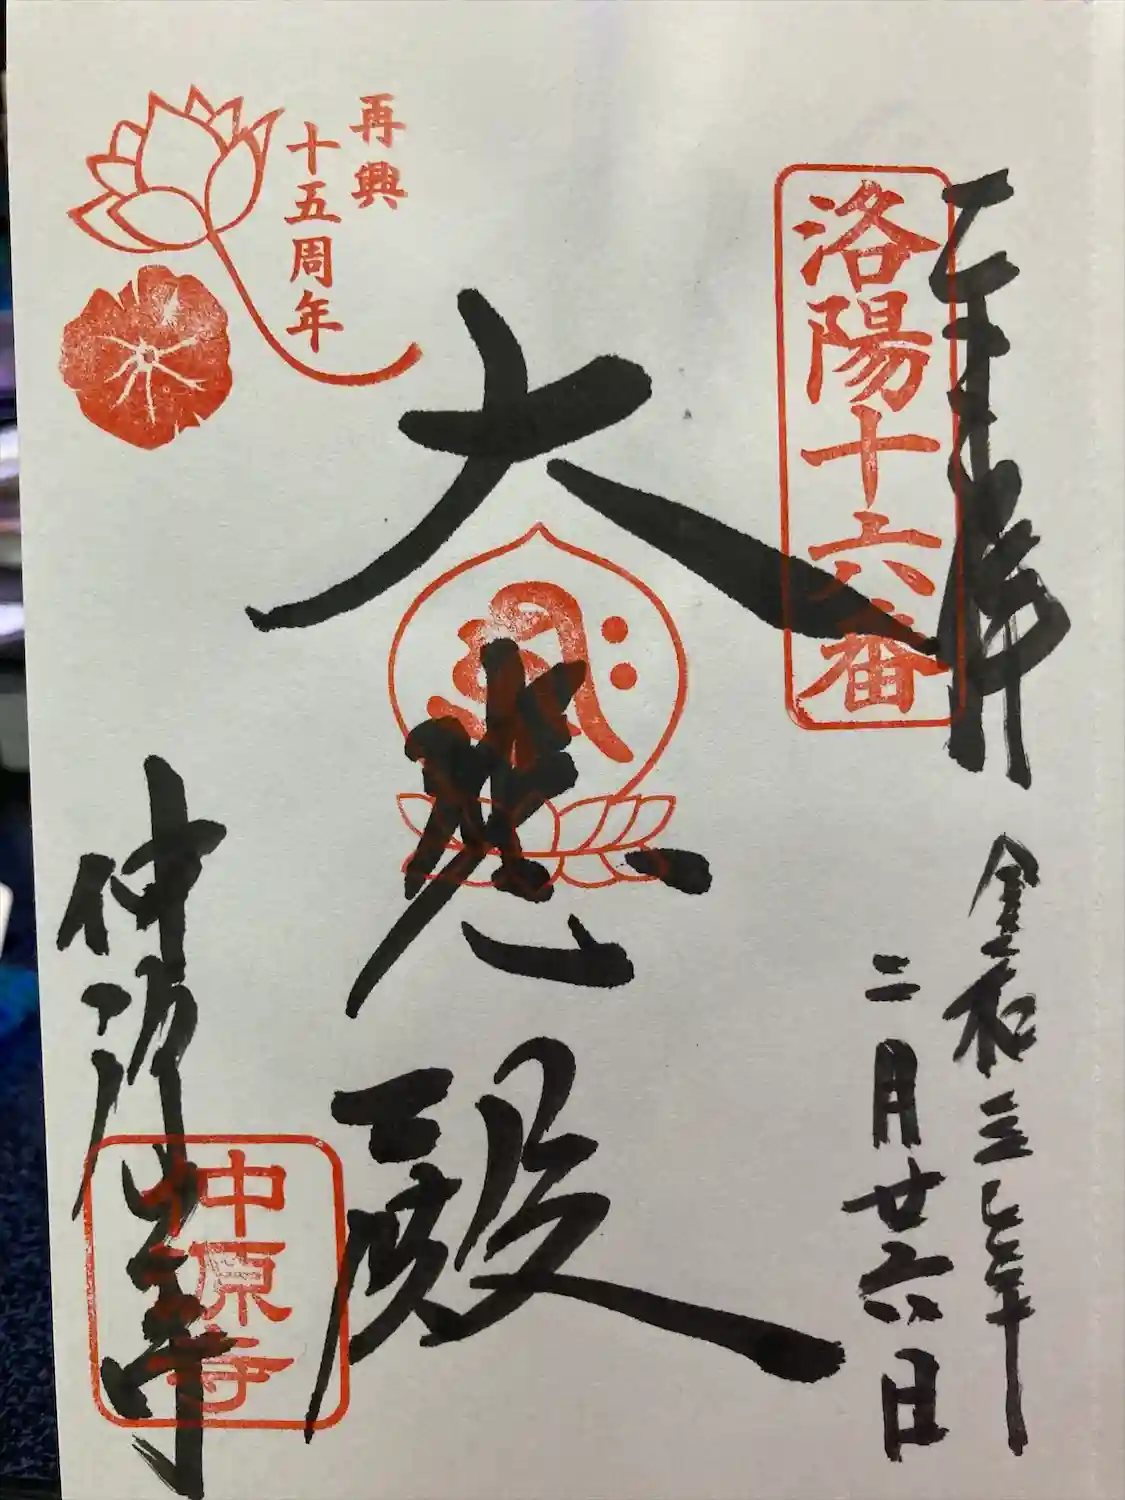 奉拝
洛陽十六番
令和三年
二月廿六日
大悲殿
再興
十五周年
仲源寺
仲源寺